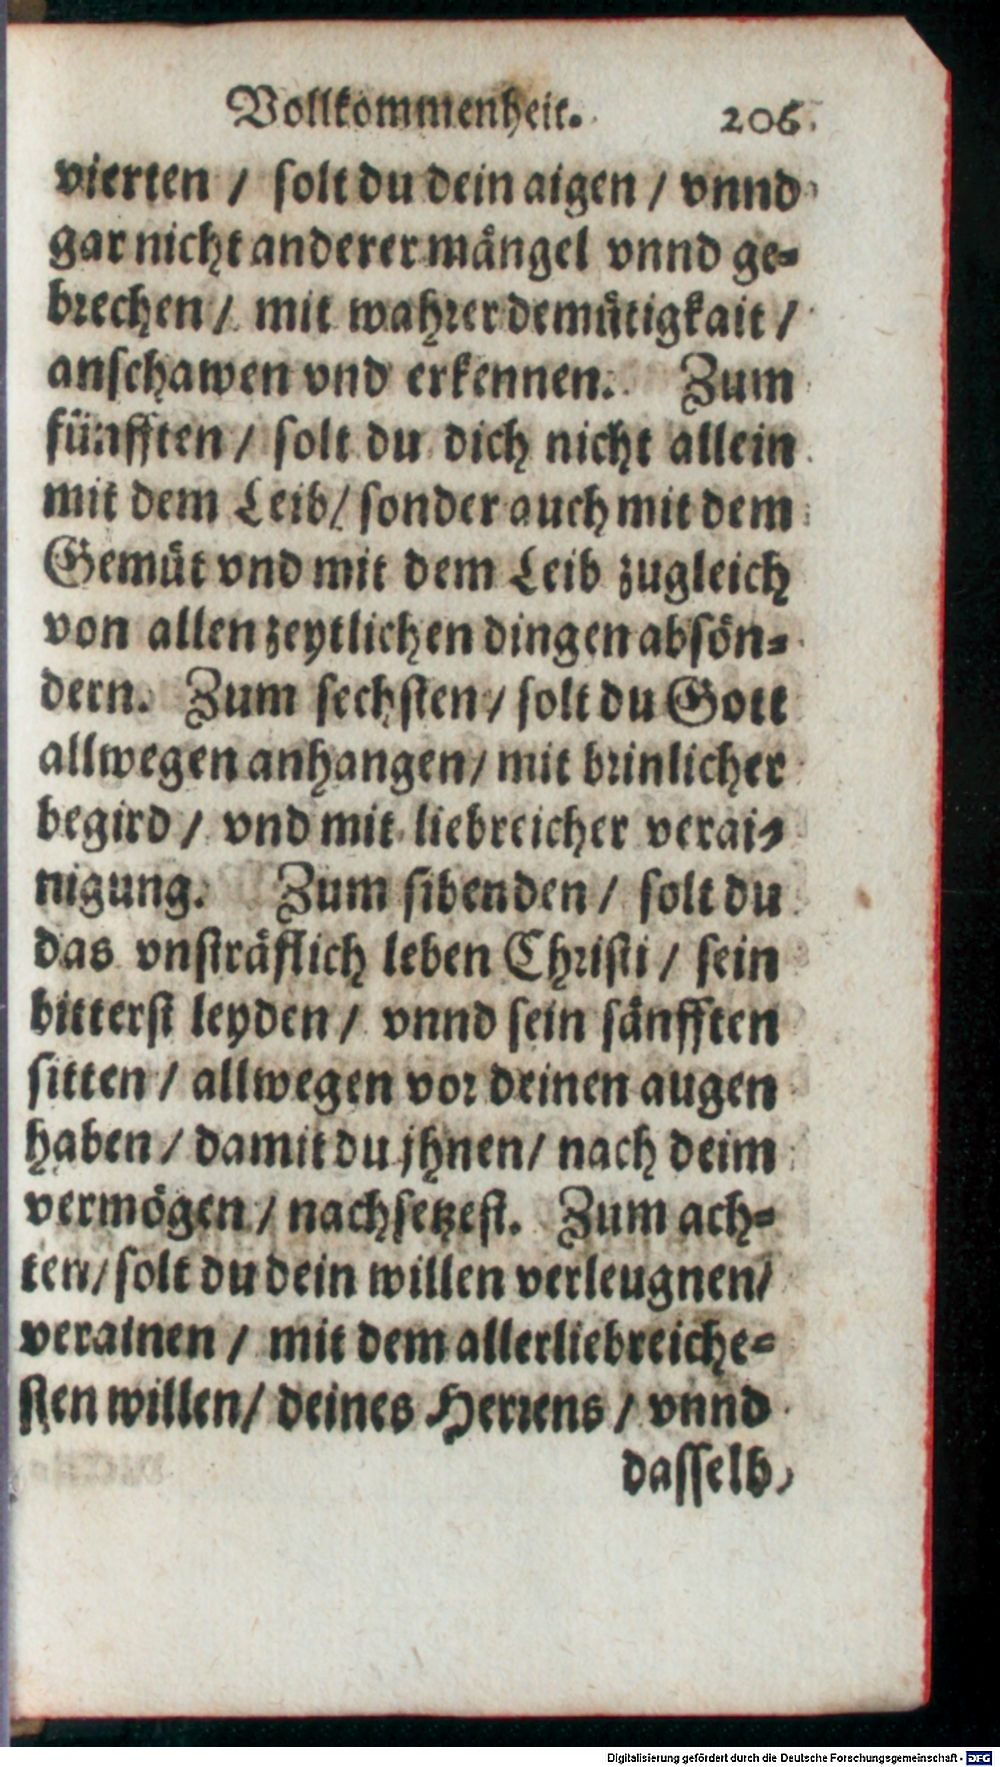 Vollkommenheit. 206.
vierten / solt du dein aigen / vnnd
gar nicht anderer mängel vnnd ge-
brechen / mit wahrer demütigkait /
anschawen vnd erkennen. Zum
fünfften / solt du dich nicht allein
mit dem Leib / sonder auch mit dem
Gemüt vnd mit dem Leib zugleich
von allen zeytlichen dingen absön-
dern. Zum sechsten / solt du Gott
allwegen anhangen / mit brinlicher
begird / vnd mit liebreicher verai-
nigung. Zum sibenden / solt du
das vnsträflich leben Christi / sein
bitterst leyden / vnnd sein sänfften
sitten / allwegen vor deinen augen
haben / damit du jhnen / nach deim
vermögen / nachsetzest. Zum ach-
ten / solt du dein willen verleugnen /
verainen / mit dem allerliebreiche-
sten willen / deines Herrens / vnnd
dasselb
Digitalisierung gefördert durch die Deutsche Forschungsgemeinschaft - DFG